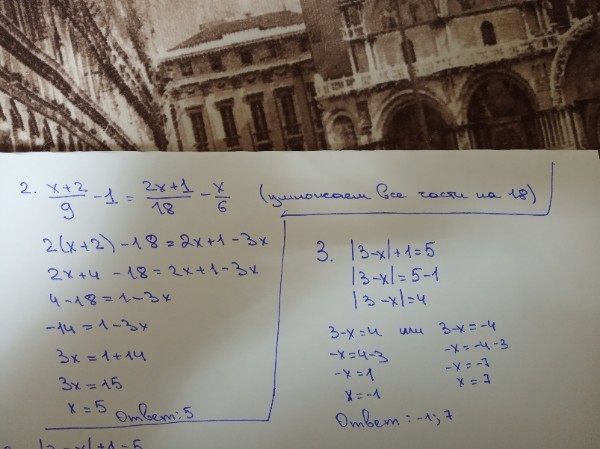 2. \frac{x+2}{9} - 1 = \frac{2x+1}{18} - \frac{x}{6} (умножаем все части на 18)
2(x+2) - 18 = 2x+1 - 3x
2x+4 - 18 = 2x+1 - 3x
4 - 18 = 1 - 3x
-14 = 1 - 3x
3x = 1 + 14
3x = 15
x = 5 Ответ: 5
3. |3-x|+1=5
|3-x| = 5-1
|3-x| = 4
3-x=4 или 3-x=-4
-x=4-3 -x=-4-3
-x=1 -x=-7
x=-1 x=7
Ответ: -1; 7
|3-x|+1=5